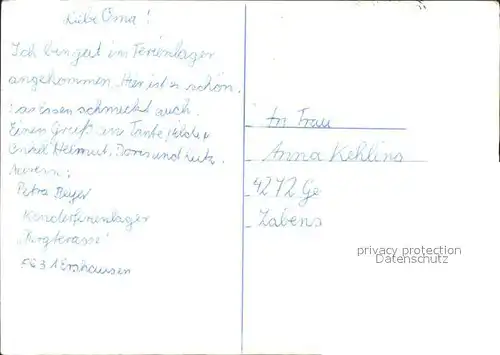 Liebe Oma!
Ich bin gut im Ferienlager
angekommen. Hier ist es schön.
Das Essen schmeckt auch.
Einen Gruß an Tante
Onkel Helmut, Doris und Lutz.
Petra Beyer
Kinderferienlager
5631 Ershausen
An Frau
Anna Kehling
4272 Ge
Zabens
privacy protection
Datenschutz